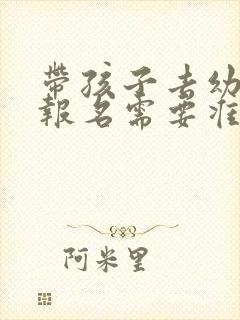 帶孩子去幼
報名需要准
阿米里